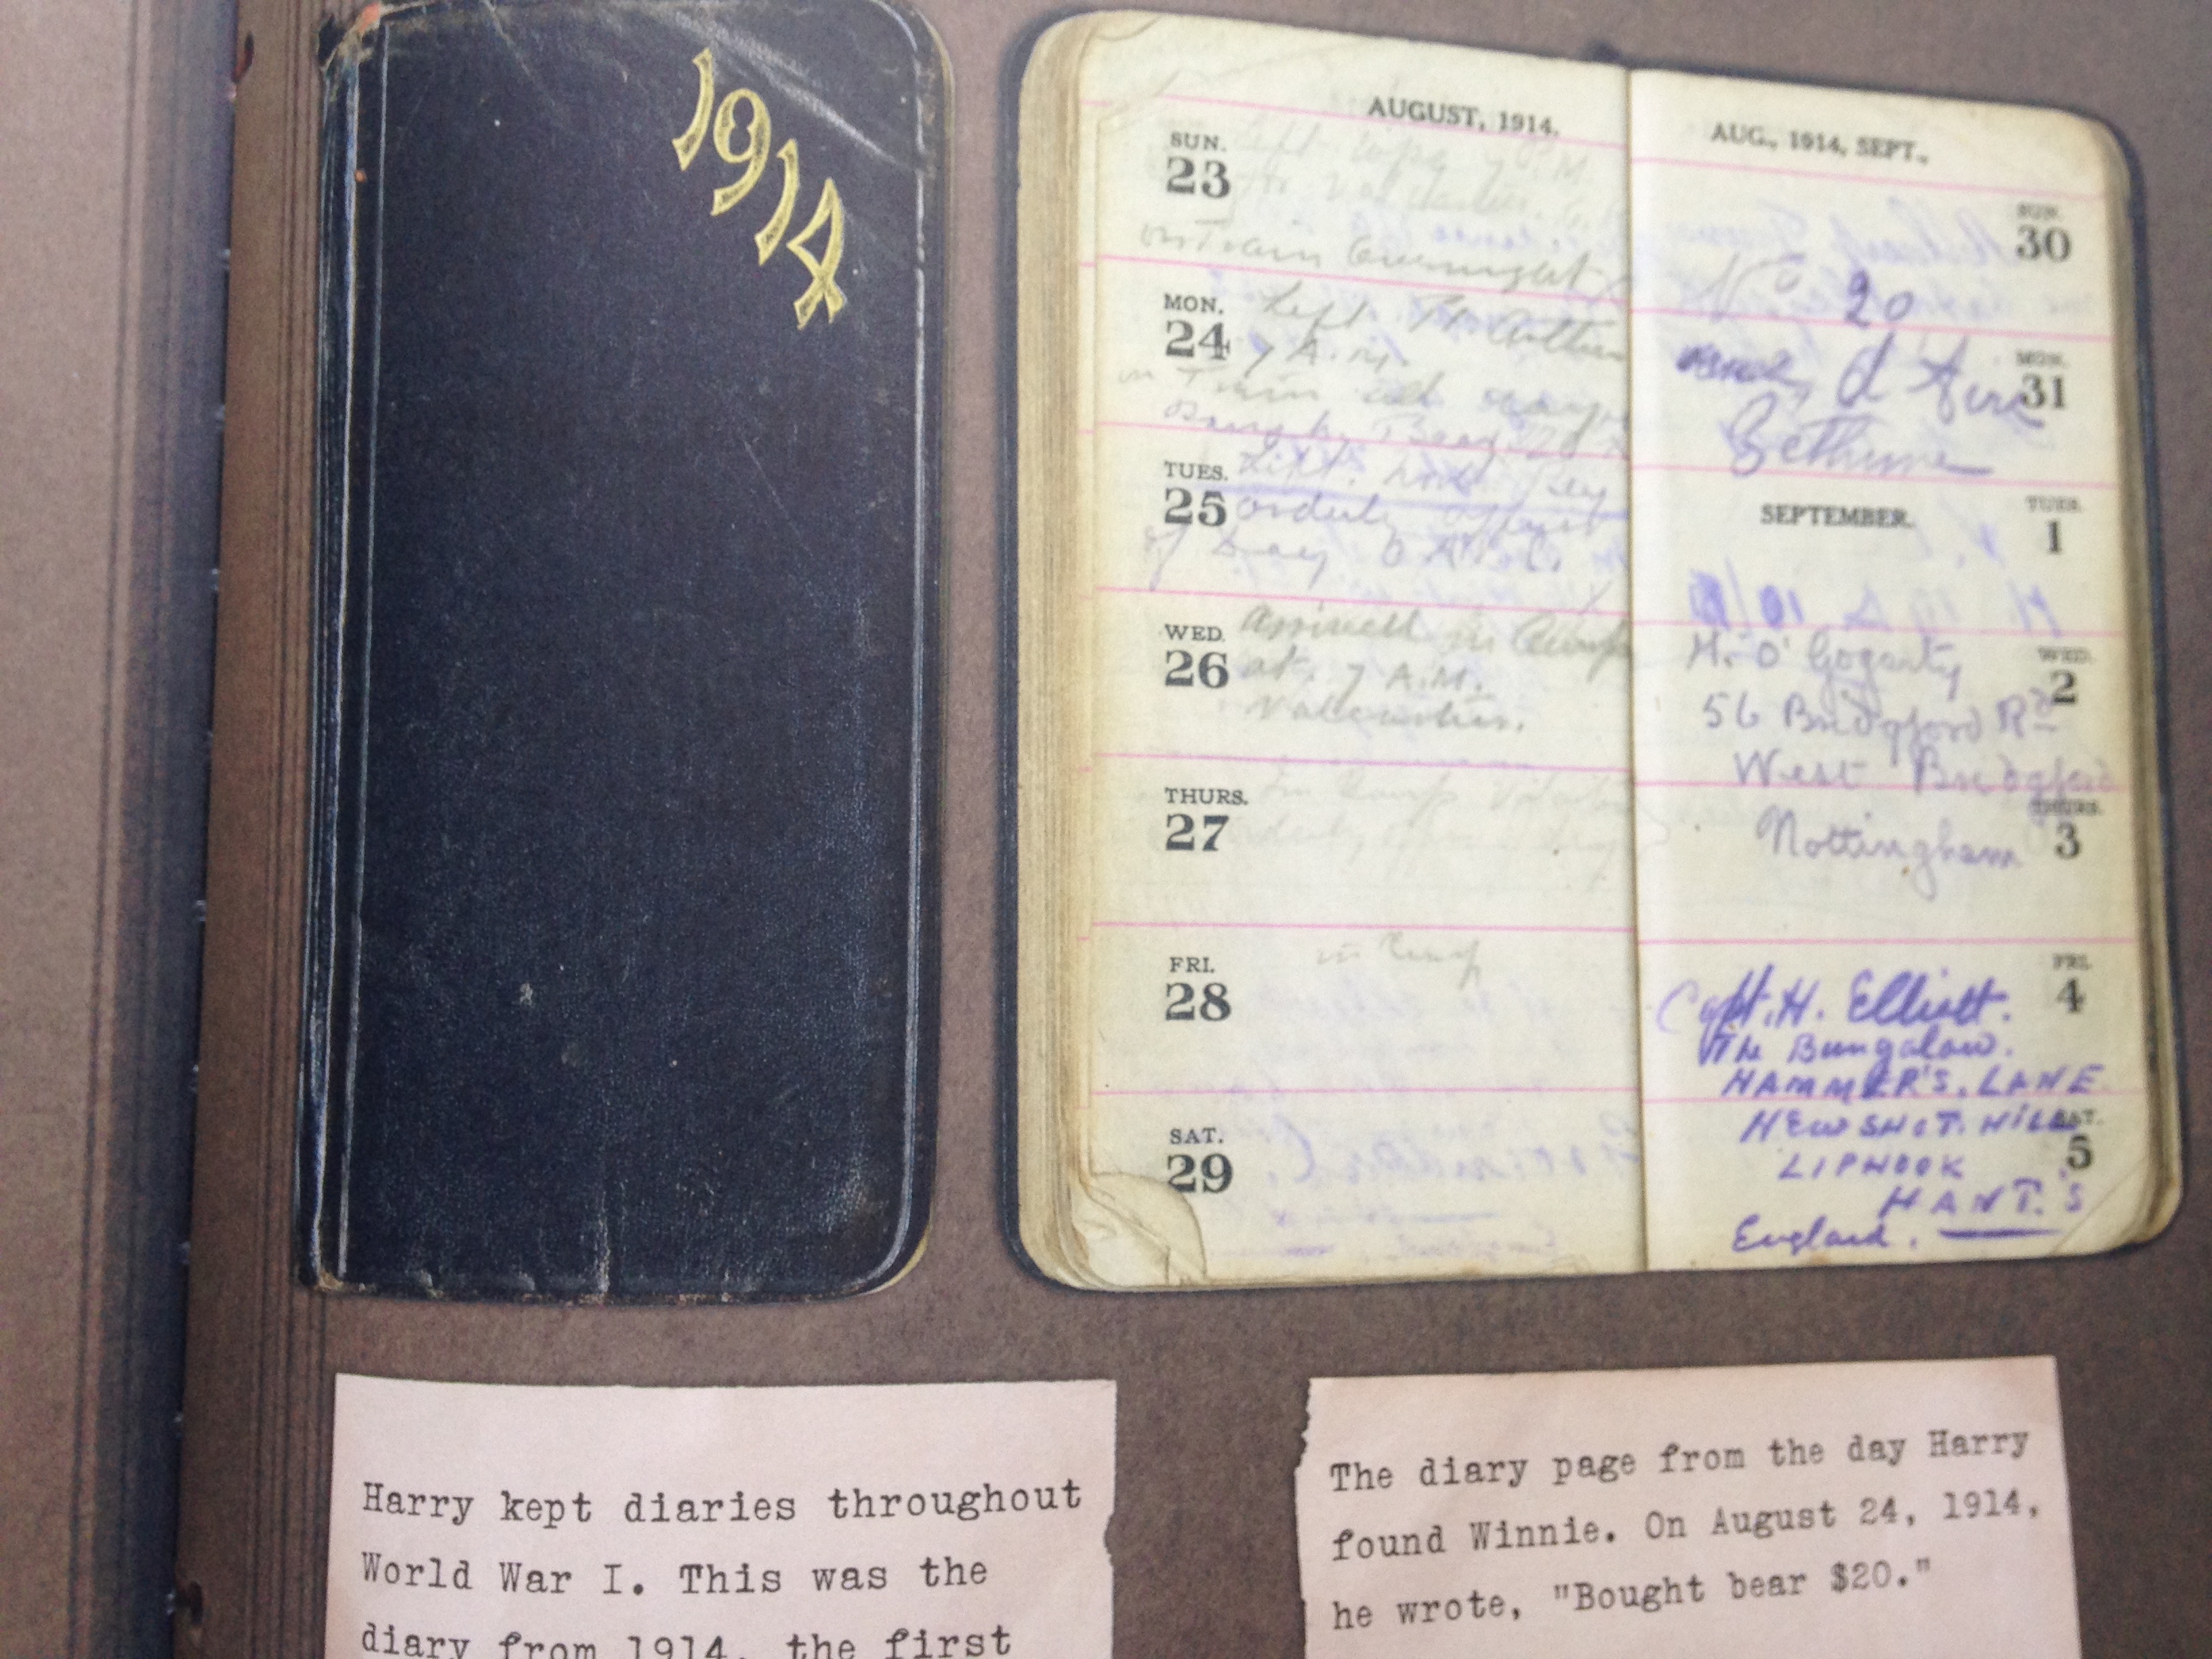 1914
AUGUST, 1914.
SUN.
23
Left Wpg 7 P.M.
for Valcartier
on Train Overnight
MON.
24
Left Pt Arthur
7 A.M.
on Train all day
Bought Bear $20
TUES.
25
Left
orderly officer
of Day
WED.
26
Arrived in Camp
at 7 A.M.
Valcartier.
THURS.
27
In Camp
orderly
FRI.
28
in Camp
SAT.
29
AUG., 1914, SEPT.,
SUN.
30
No 20
MON.
31
d'Aire
Bethune
SEPTEMBER.
TUES.
1
H. O'Gogarty
WED.
2
56 Bridgford Rd
West Bridgford
THURS.
3
Nottingham
FRI.
4
Capt. H. Elliott.
The Bungalow.
HAMMER'S. LANE
HEWSHOT. HILL
SAT.
5
LIPHOOK
HANT.'S
England.
Harry kept diaries throughout
World War I. This was the
diary from 1914, the first
The diary page from the day Harry
found Winnie. On August 24, 1914,
he wrote, "Bought bear $20."